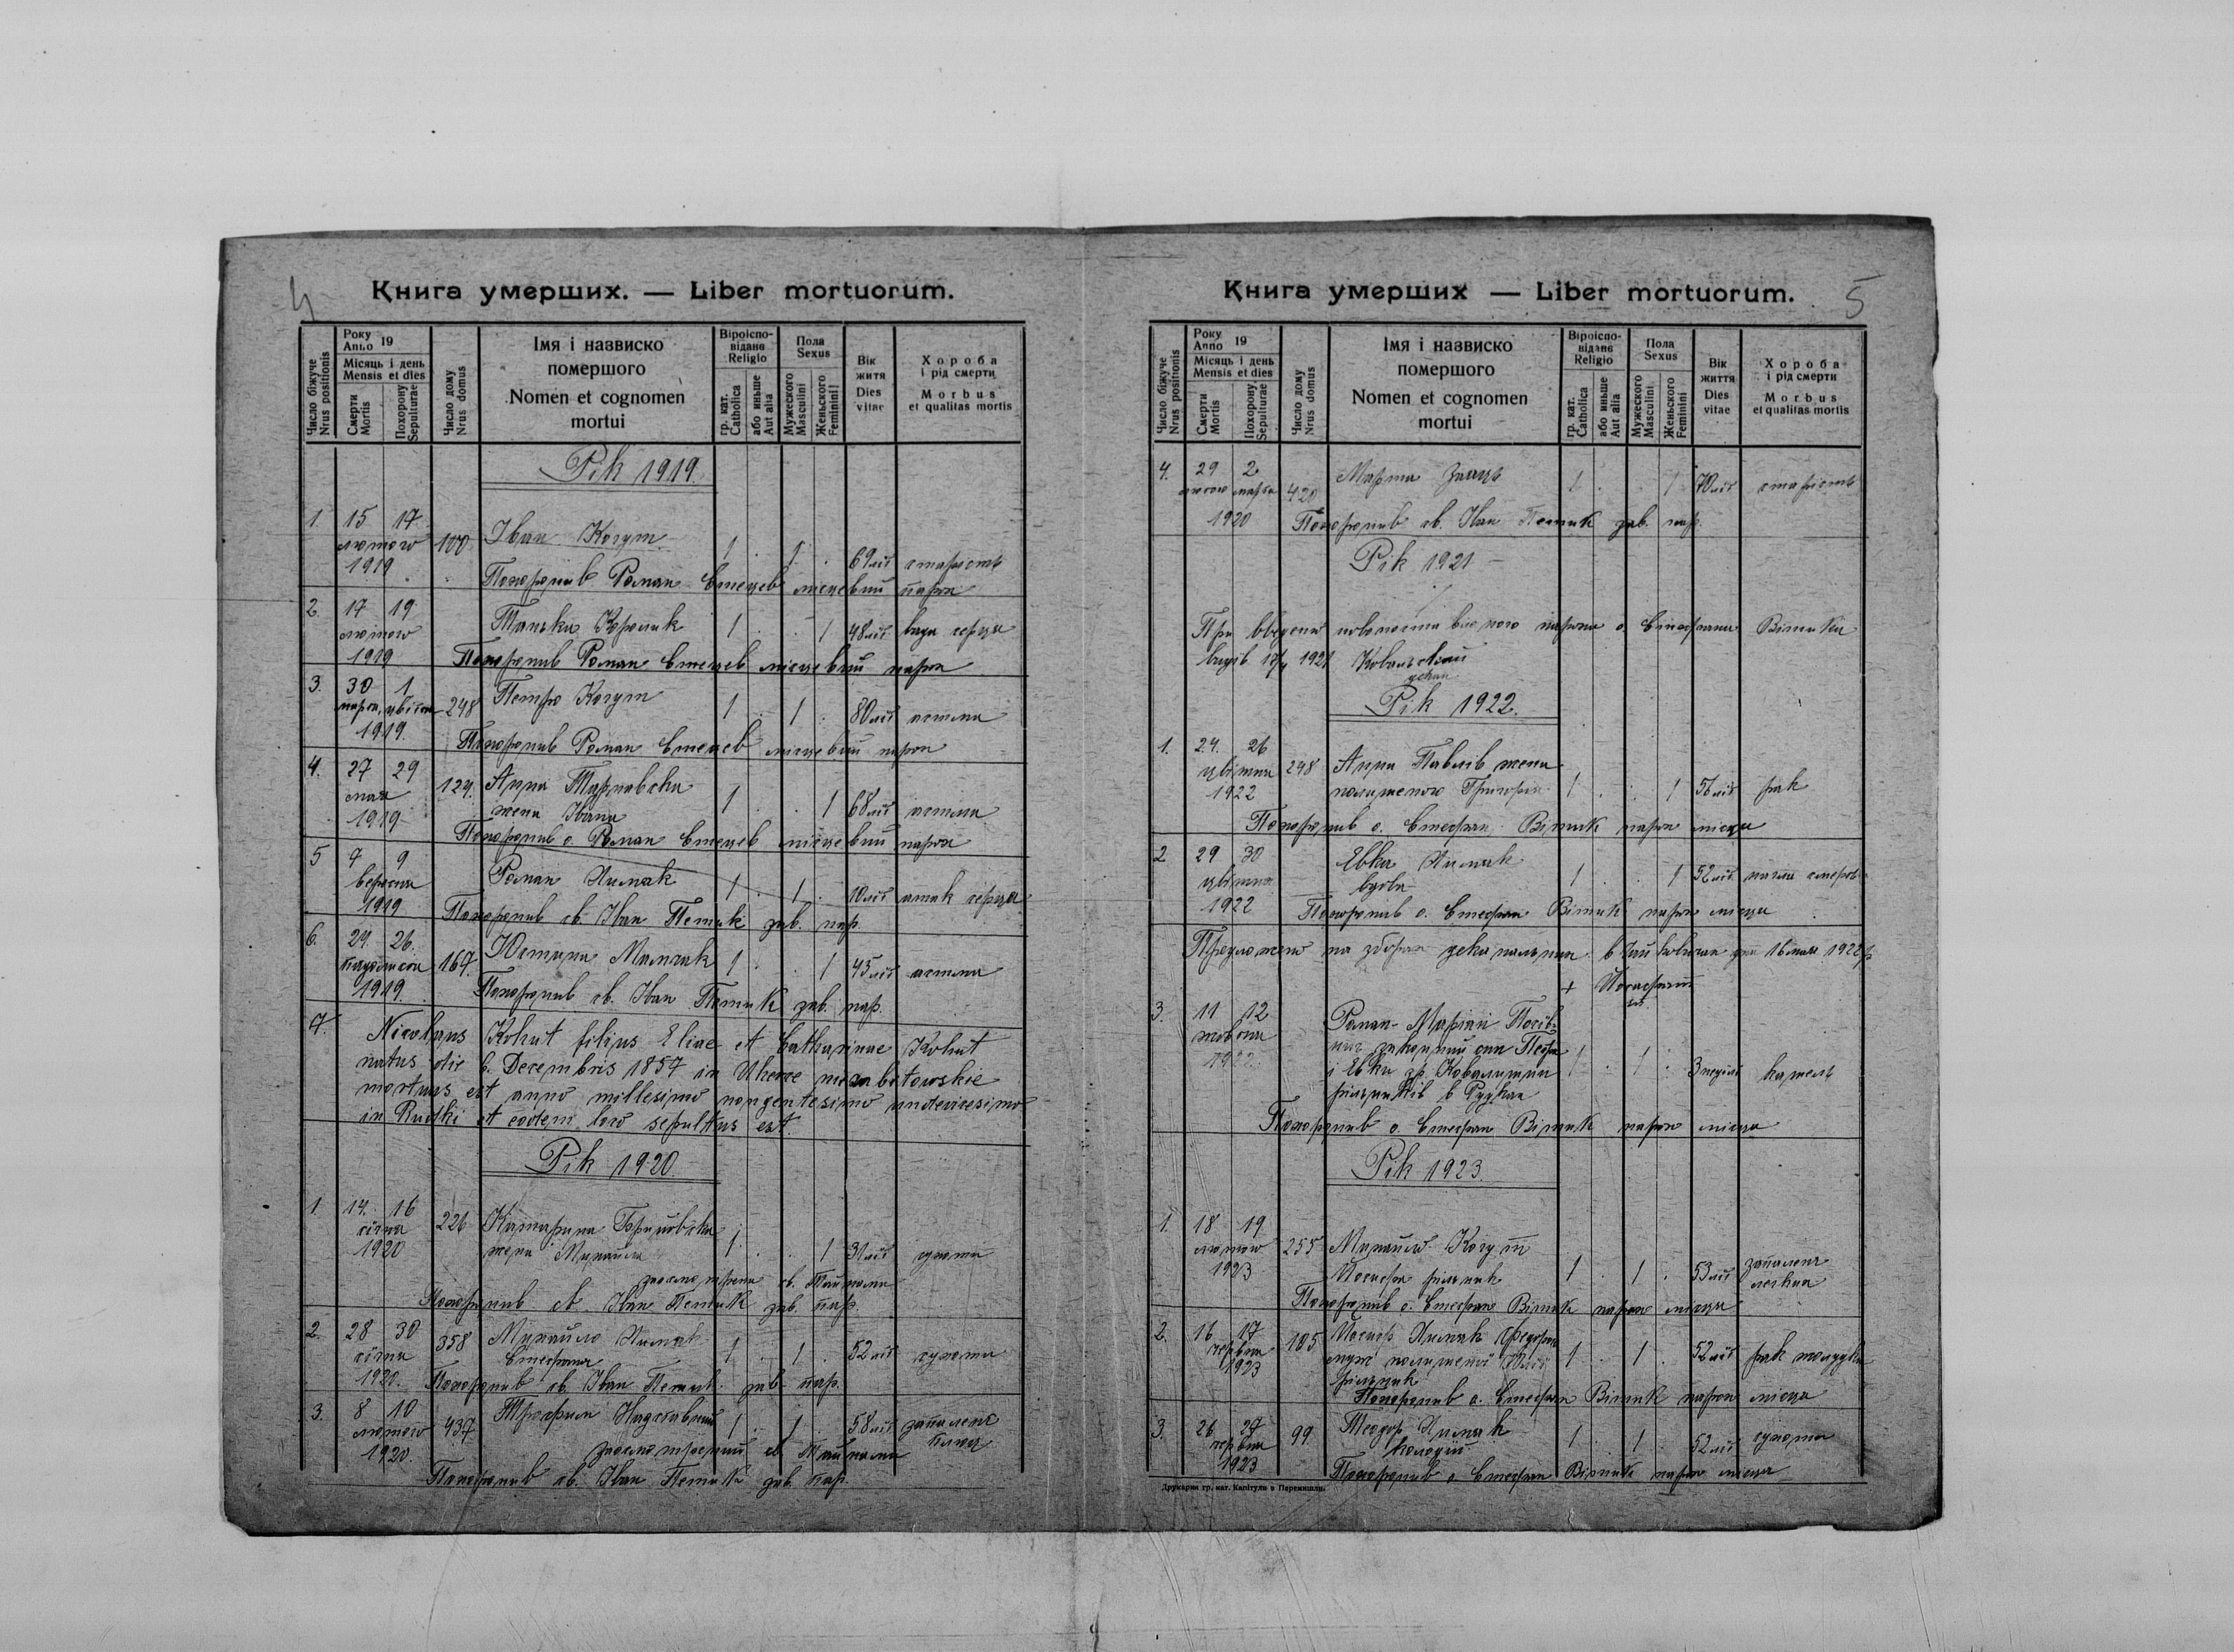 4
Книга умерших. — Liber mortuorum.
Число біжуче Nrus positionis
Року Anno 19
Місяць і день Mensis et dies
Смерти Mortis
Похорону Sepulturae
Число дому Nrus domus
Імя і назвиско
помершого
Nomen et cognomen
mortui
Віроіспо-
відане
Religio
гр. кат. Catholica
або иньше Aut alia
Пола
Sexus
Мужеского Masculini
Женьского Feminini
Вік
житя
Dies
vitae
Хороба
і рід смерти
Morbus
et qualitas mortis
Рік 1919.
1. 15 17 лютого 1919 100 Іван Когут 1 . 1 . 69 літ старість
Похоронив Роман Стецев місцевий парох
2. 17 19 лютого 1919 Танька Королик 1 . . 1 48 літ вада серця
Похоронив Роман Стецев місцевий парох
3. 30 1 марта, цвітня 1919. 248 Петро Когут 1 . 1 . 80 літ астма
Похоронив Роман Стецев місцевий парох
4. 27 29 мая 1919 129. Анна Тарнавска
жена Івана 1 . . 1 68 літ астма
Похоронив о. Роман Стецев місцевий парох
5 7 9 вересня 1919 Роман 1 . 1 . 10 літ атак серця
Похоронив св. Іван Петик зав. пар.
6. 24. 26. падолиста 1919. 167 Юстина 1 . . 1 45 літ астма
Похоронив св. Іван Петик зав. пар.
7. Nicolaus Kohut filius Eliae et Catharinae Kohut
natus die 6. Decembris 1857 in Uherce
mortuus est anno millesimo nongentesimo undevicesimo
in Rudki et eodem loco sepultus est.
Рік 1920.
1. 14. 16 січня 1920 226 Катарина
жена Михайла 1 . . 1 31 літ сухоти
заосмотрена св. Тайнами
Похоронив св. Іван Петик зав. пар.
2. 28 30 січня 1920. 358 Михайло
Стефана 1 . 1 . 52 літ сухоти
Похоронив св. Іван Петик зав. пар.
3. 8 10 лютого 1920. 437 Трофим 1 . 1 . 58 літ запалене
заосмотрений св. Тайнами
Похоронив св. Іван Петик зав. пар.
5
Книга умерших — Liber mortuorum.
Число біжуче Nrus positionis
Року Anno 19
Місяць і день Mensis et dies
Смерти Mortis
Похорону Sepulturae
Число дому Nrus domus
Імя і назвиско
помершого
Nomen et cognomen
mortui
Віроіспо-
відане
Religio
гр. кат. Catholica
або иньше Aut alia
Пола
Sexus
Мужеского Masculini
Женьского Feminini
Вік
життя
Dies
vitae
Хороба
і рід смерти
Morbus
et qualitas mortis
4. 29 2 лютого марта 1920 420 Марта Заяць 1 . . 1 70 літ старість
Похоронив св. Іван Петик зав. пар.
Рік 1921 —
При введеню пароха о. Стефана Вітика
видів 17/4 1921 Ковальский
декан
Рік 1922.
1. 24. 26 цвітня 1922 248 Анна Павлів жена
Григория 1 . . 1 56 літ рак
Похоронив о. Стефан Вітик парох місця
2 29 30 цвітня 1922 Евка
вдова 1 . . 1 52 літ нагла смерть
Похоронив о. Стефан Вітик парох місця
Предложено на зборах деканальних в дня 16 мая 1922 р.
+ Йосафат
3. 11 12 жовтня 1922 Роман-Маріян
законний син Петра
і Евки др. 1 . 1 . 3 неділі кашель
рільників в Рудках
Похоронив о. Стефан Вітик парох місця
Рік 1923.
1. 18 19 лютого 1923 255 Михайло Когут
Йосифа рільник 1 . 1 . 53 літ запалене
легких
Похоронив о. Стефан Вітик парох місця
2. 16 17 червня 1923 105 Йосиф Федора
муж
рільник 1 . 1 . 52 літ рак жолудка
Похоронив о. Стефан Вітик парох місця
3. 26 27 червня 1923 99 Теодор 1 . 1 . 52 літ сухоти
Похоронив о. Стефан Вітик парох місця
Друкарня гр. кат. Капітули в Перемишли.